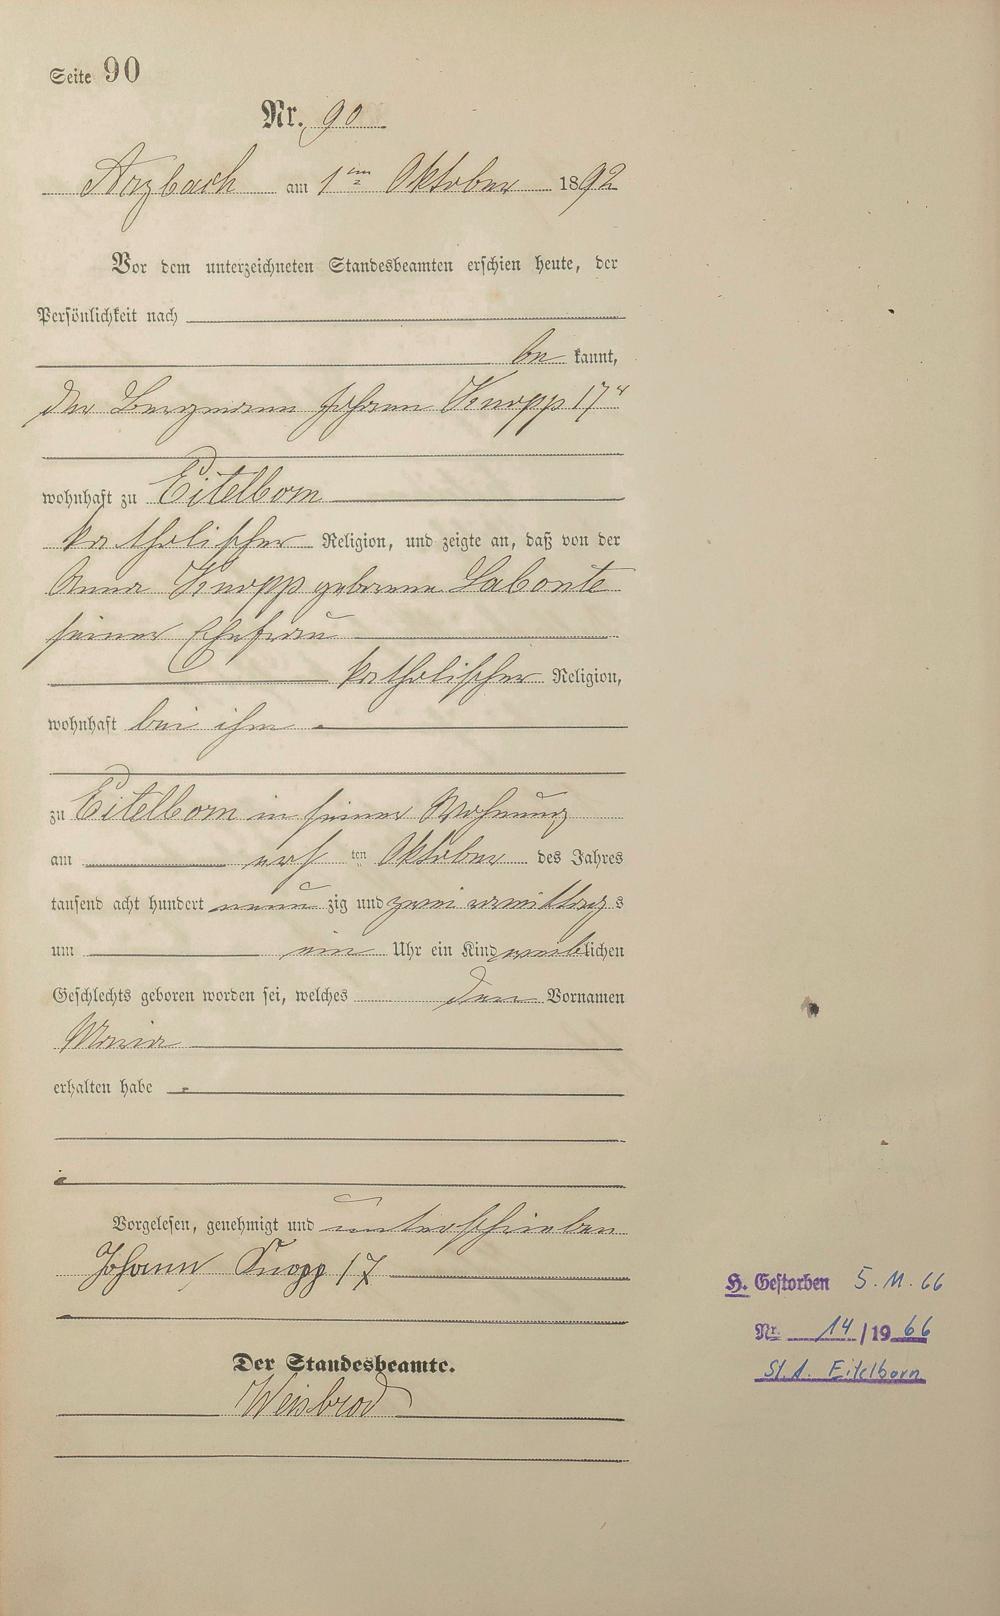 Seite 90
Nr. 90
Arzbach am 1ten Oktober 1892
Vor dem unterzeichneten Standesbeamten erschien heute, der
Persönlichkeit nach
be kannt,
der Bergmann Johann Knopp 17r
wohnhaft zu Eitelborn
katholischer Religion, und zeigte an, daß von der
Anna Knopp geborene Labonte
seiner Ehefrau
katholischer Religion,
wohnhaft bei ihm
zu Eitelborn in seiner Wohnung
am ersten Oktober des Jahres
tausend acht hundert neun zig und zwei vormittags
um ein Uhr ein Kind weiblichen
Geschlechts geboren worden sei, welches den Vornamen
Maria
erhalten habe
Vorgelesen, genehmigt und unterschrieben
Johann Knopp 17
H. Gestorben 5.11.66
Nr. 14/1966
St.A. Eitelborn
Der Standesbeamte.
Weisbrod